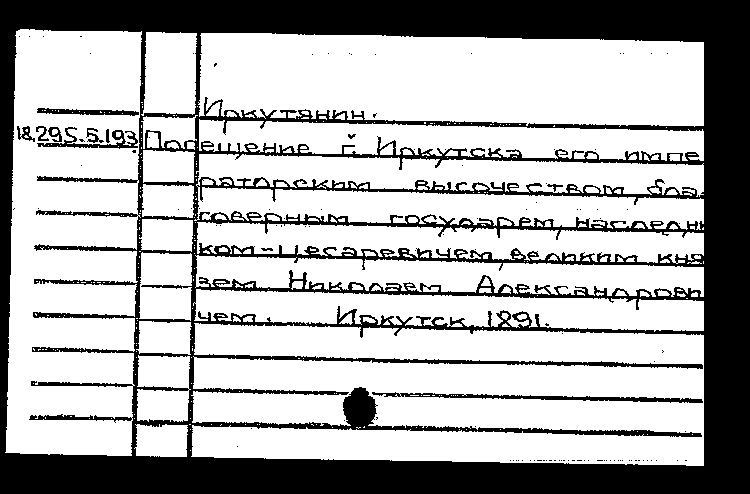 Иркутянин.
18.295.5.193 Посещение г. Иркутска его импе
раторским высочеством, бла-
говерным государем, наследни
ком-Цесаревичем, великим кня
зем Николаем Александрови
чем. Иркутск, 1891.